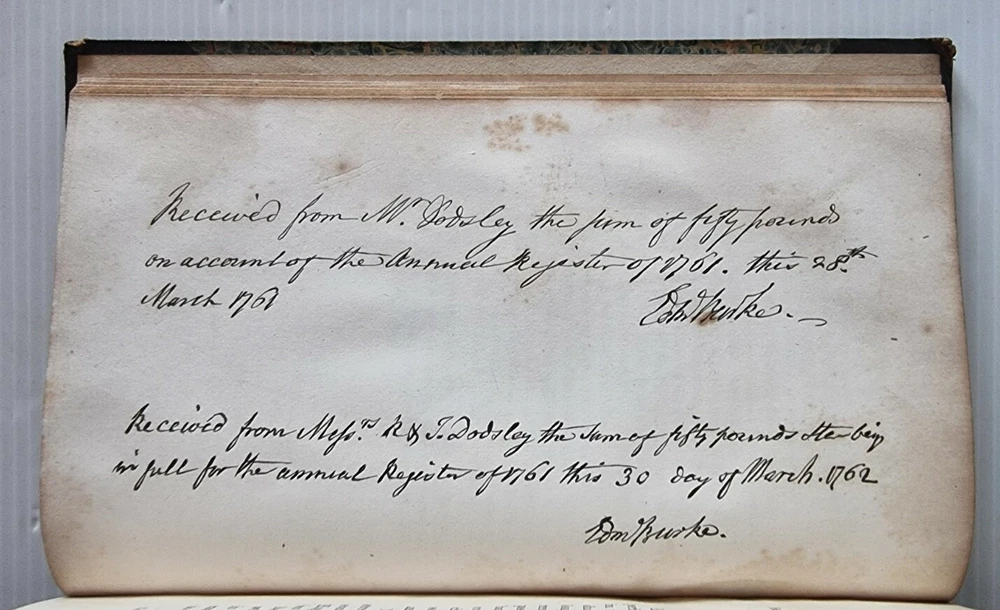 Received from Mr. Dodsley the sum of fifty pounds
on account of the Annual Register of 1761. this 28th
March 1761
Edm Burke.
Received from Messrs. R & J. Dodsley the Sum of fifty pounds being
in full for the annual Register of 1761 this 30 day of March. 1762
Edm Burke.